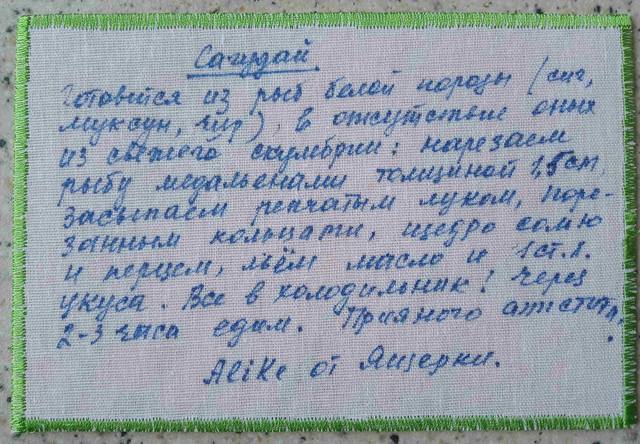 Сагудай
Готовится из рыб белой породы (сиг,
муксун, чир), в отсутствие оных
из свежего скумбрии: нарезаем
рыбу медальенами толщиной 1,5 см,
засыпаем репчатым луком, поре-
занным кольцами, щедро солью
и перцем, льём масло и 1 ст.л.
укуса. Все в холодильник! Через
2-3 часа едим. Прияного аппетита.
AliKe от Ящерки.